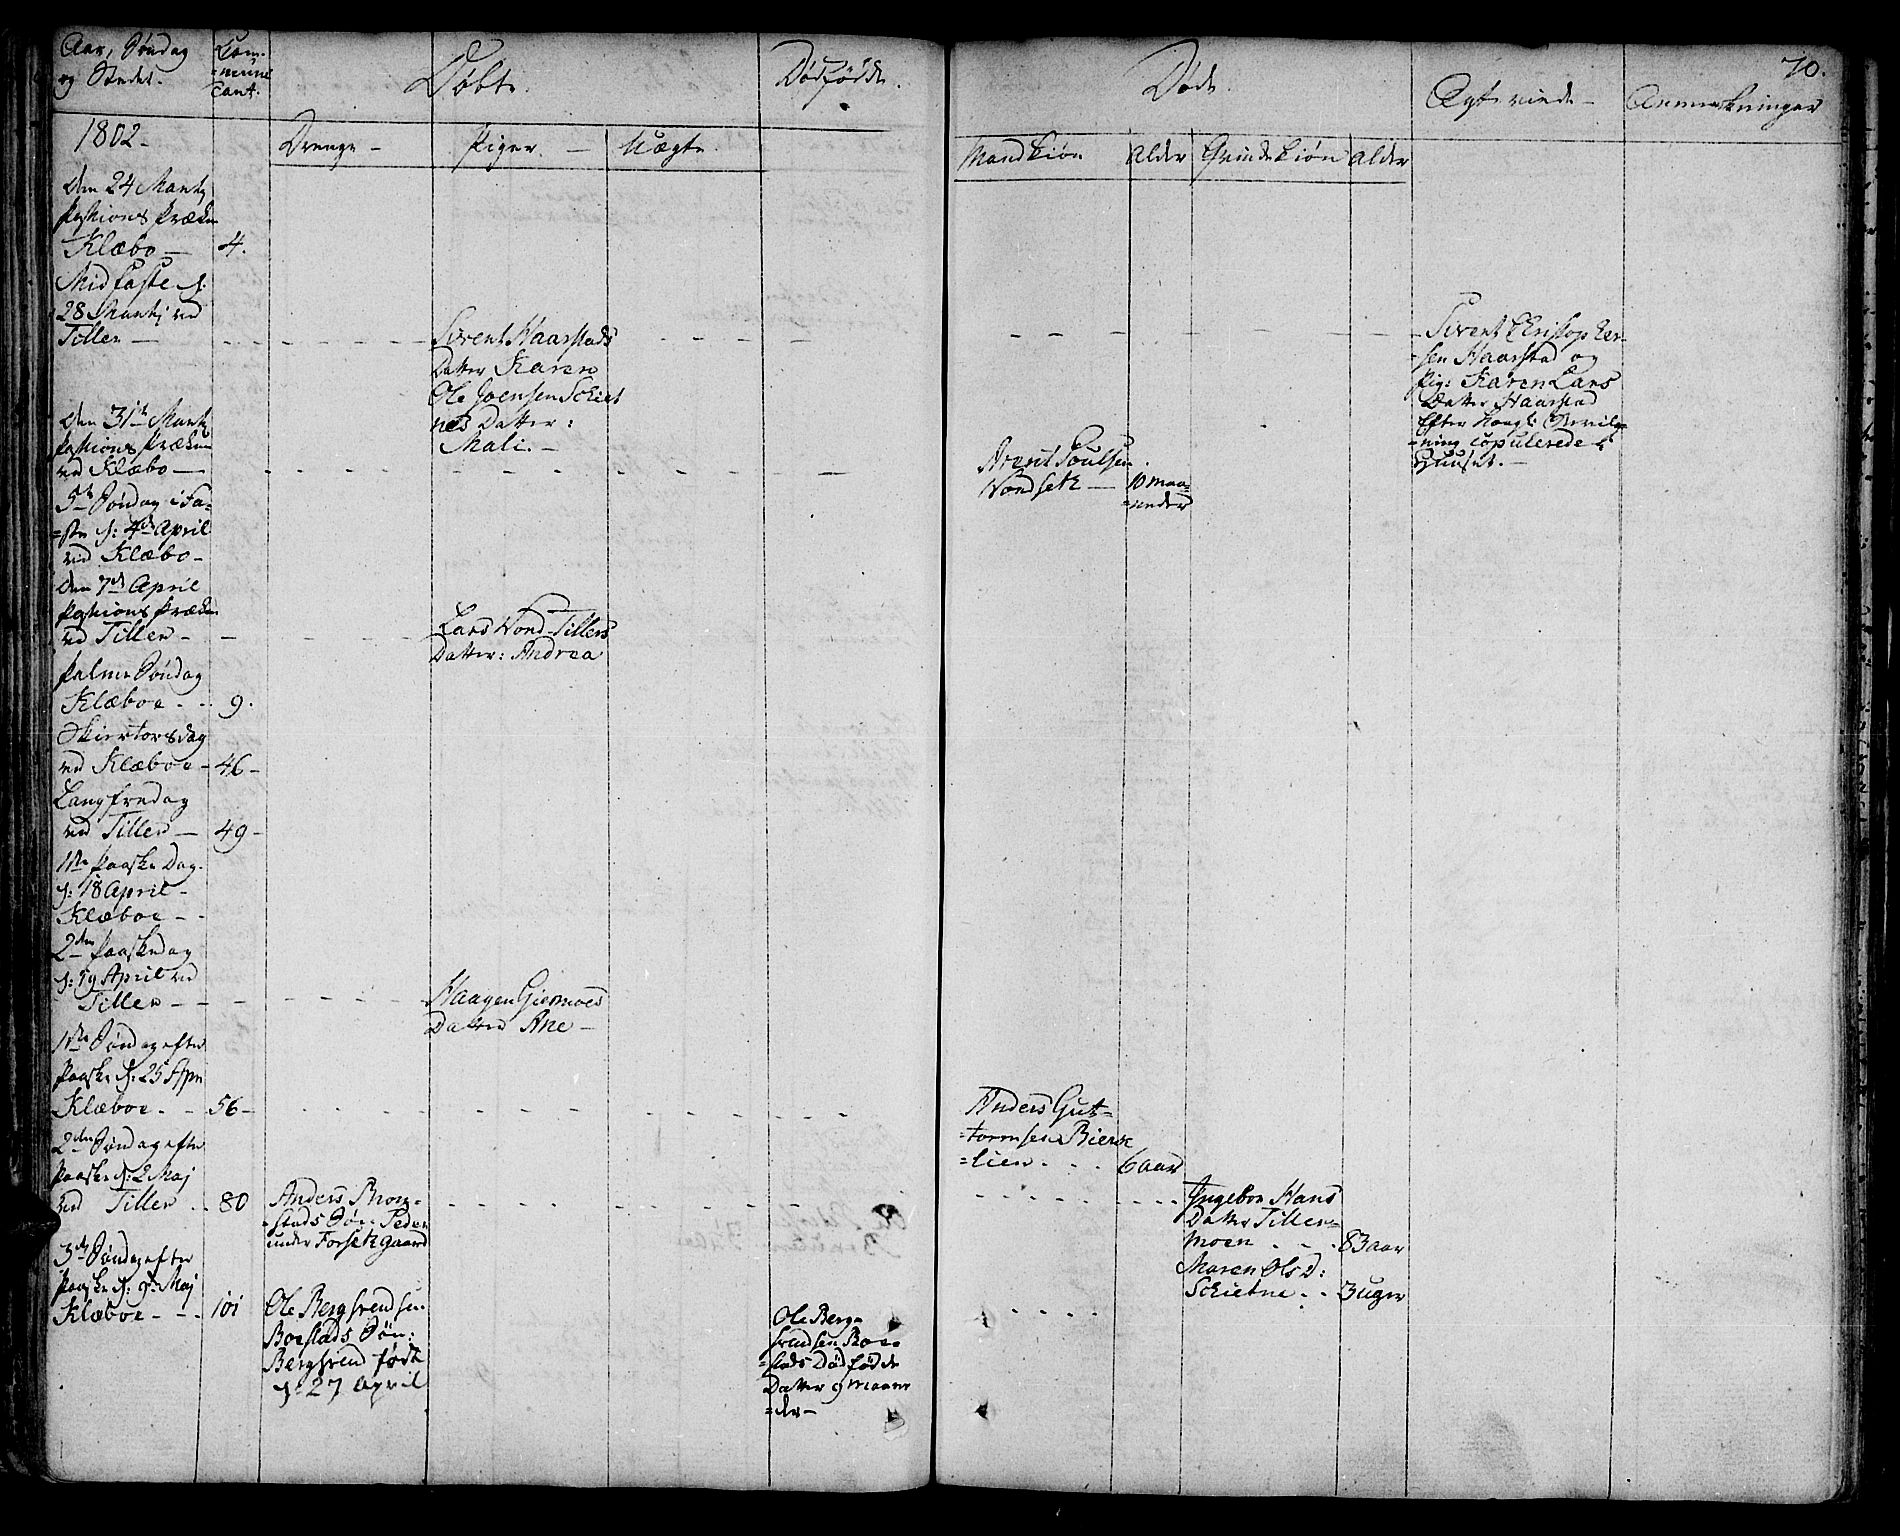 Aar, Søndag
og Stedet.
Com-
=muni
cant.
Døbte.
Dødfødde.
Døde
70.
Ægteviede -
Anmærkninger
1802 -
Drenge -
Piger. -
Uægte.
Mandkiøn
Alder
Qvindekiøn
Alder
den 24 Martij
Passions Præken
Klæbo - 4.
Midfaste S:
28 Martij ved
Tiller -
Sivert Haarstads
Datter Karen
Ole Joensen Schiet
nes Datter:
Mali. -
Sivert Christopher-
sen Haarstad og
Pig: Karen Lars
Datter Haarstad
Efter Kongl: Bevilg-
ning copulerede i
Huuset. -
den 31te Martij
Passions Præken
ved Klæbo -
Sivert Poulsen
Nordseth - 10 maa-
=neder
5te Søndag i Fa-
=ste d: 4de April
ved Klæbo -
den 7de April
Passions Præken
ved Tiller -
Lars Nord-Tillers
Datter: Andrea
Palme Søndag
Klæboe - - 9.
Skiertorsdag
ved Klæboe - 46 -
Langfredag
ved Tiller - 49 -
1ste Paaske Dag
d: 18 April -
Klæboe - -
2den Paaskedag
d: 19 April ved
Tiller - -
Haagen Giemoes
Datter Ane -
1ste Søndag efter
Paaske d: 25 Apr
Klæboe - - 56 -
Anders Gut-
=tormsen Bierk
=lien . . . 6 aar
2den Søndag efter
Paaske d: 2 Maj
ved Tiller - - 80
Anders Bror-
=stads Søn Peder
under Forsethgaard
Ingebor Hans
Datter Tiller-
moen . . . 83 aar
Maren Ols D:
Schietne . . 3 uger
3de Søndag efter
Paaske d: 9de Maj
Klæboe - - - 101
Ole Bergsvendsen
Borstads Søn:
Bergsvend født
d: 27 April
Ole Berg-
svendsen Bor-
=stads Dødfødde
Datter 9 maane
=der -